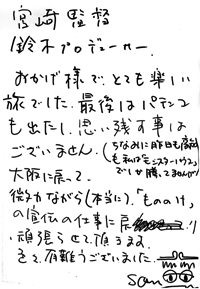 宮崎監督
鈴木プロデューサー
おかげ様で、とても楽しい
旅でした。最後はパチンコ
も出たし、思い残す事は
ございません。(ちなみに昨日も
も私は
でいが勝ってませんが)
大阪に戻って。
微力ながら(本当に)、「もののけ」
の宣伝の仕事に戻り
頑張らせて頂きます。
有難うございました。